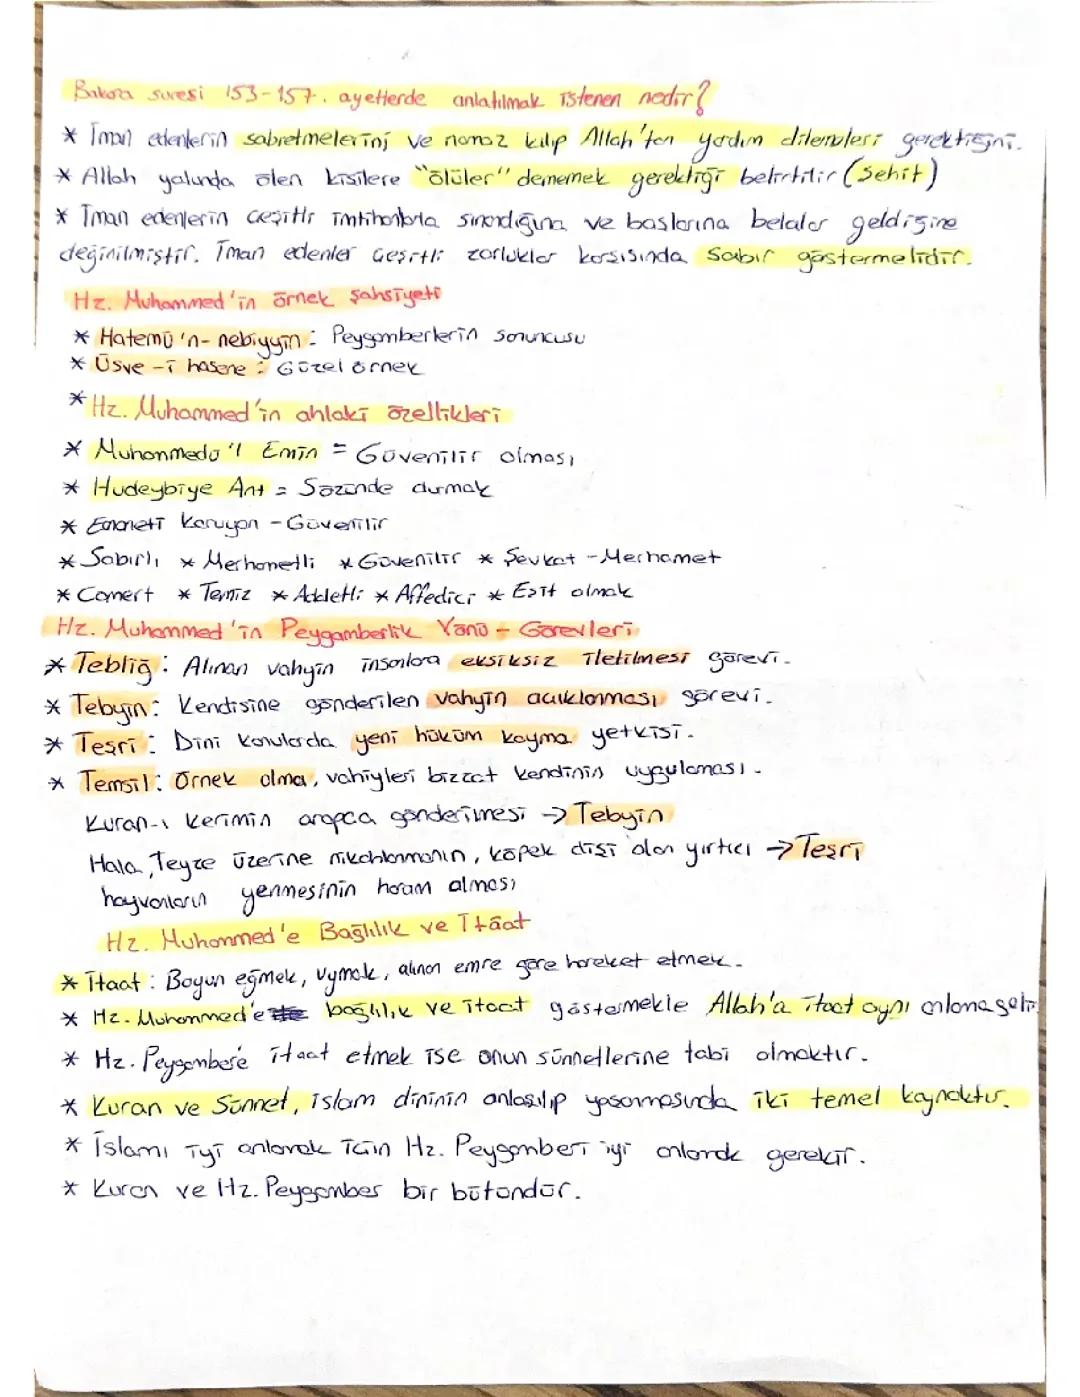 Bakara suresi 153-157. ayetlerde anlatılmak istenen nedir?
* İman edenlerin sabretmelerini ve namaz kılıp Allah'tan yardım dilemeleri gerektiğini.
* Allah yolunda ölen kişilere "ölüler" dememek gerektiği belirtilir (Şehit)
* İman edenlerin çeşitli imtihanlarla sınandığına ve başlarına belalar geldiğine
değinilmiştir. İman edenler çeşitli zorluklar karşısında sabır göstermelidir.
Hz. Muhammed'in örnek şahsiyeti
* Hatemü'n-nebiyyin: Peygamberlerin sonuncusu
* Üsve-i hasene: Güzel örnek
* Hz. Muhammed'in ahlaki özellikleri
* Muhammedü'l Emin = Güvenilir olması
* Hudeybiye Ant = Sözünde durmak
* Emaneti Koruyan - Güvenilir
* Sabırlı * Merhametli * Güvenilir * Şevkat - Merhamet
* Comert * Temiz * Adaletli * Affedici * Eşit olmak
Hz. Muhammed'in Peygamberlik Yönü - Görevleri
* Tebliğ: Alınan vahyin insanlara eksiksiz iletilmesi görevi.
* Tebyin: Kendisine gönderilen vahyin açıklanması görevi.
* Teşri: Dini konularda yeni hüküm koyma yetkisi.
* Temsil: Örnek olma, vahiyleri bizzat kendinin uygulaması.
Kuran-ı Kerimin arapça gönderilmesi → Tebyin
Hala, Teyze üzerine nikahlanmanın, köpek dişi olan yırtıcı → Teşri
hayvanların yenmesinin haram olması
Hz. Muhammed'e Bağlılık ve İtaat
* İtaat: Boyun eğmek, uymak, alınan emre göre hareket etmek.
* Hz. Muhammed'e bağlılık ve itaat göstermekle Allah'a itaat aynı anlama gelir.
* Hz. Peygambere itaat etmek ise onun sünnetlerine tabi olmaktır.
* Kuran ve Sünnet, islam dininin anlaşılıp yaşanmasında iki temel kaynaktır.
* İslamı iyi anlamak için Hz. Peygamberi iyi anlamak gerekir.
* Kuran ve Hz. Peygamber bir bütündür.